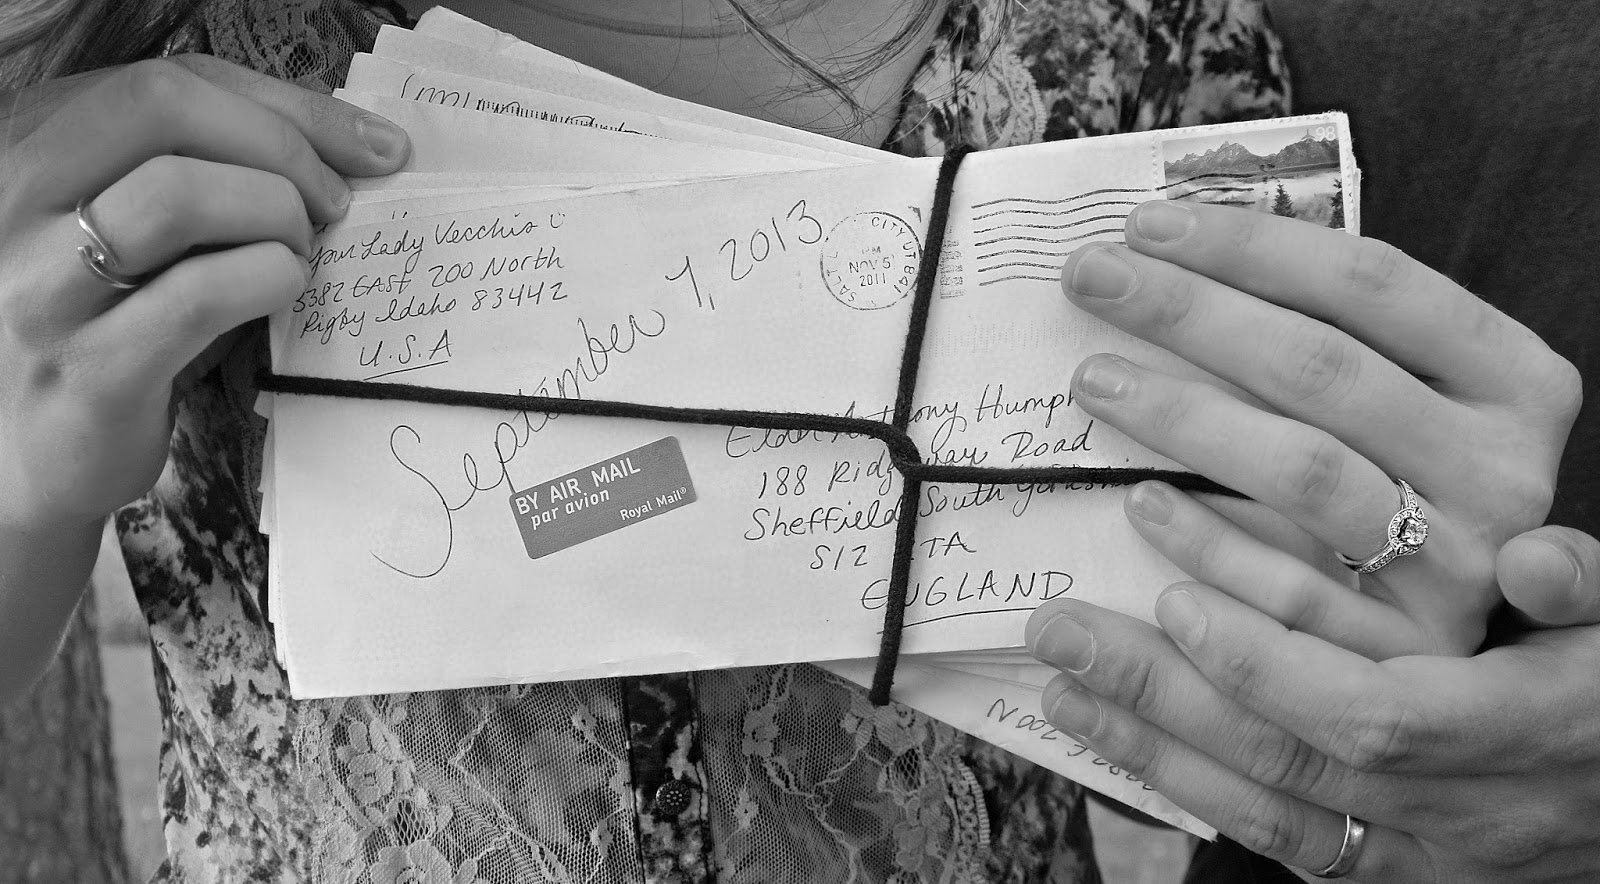 Your Lady Vecchio
5382 EAST 200 North
Rigby Idaho 83442
U.S.A
September 7, 2013
CITY UT 841
PM
NOV 5
2011
SALT L
98
BY AIR MAIL
par avion
Royal Mail®
Elder Anthony Humph
188 Ridgeway Road
Sheffield South Yorkshi
S12 TA
ENGLAND
200 N